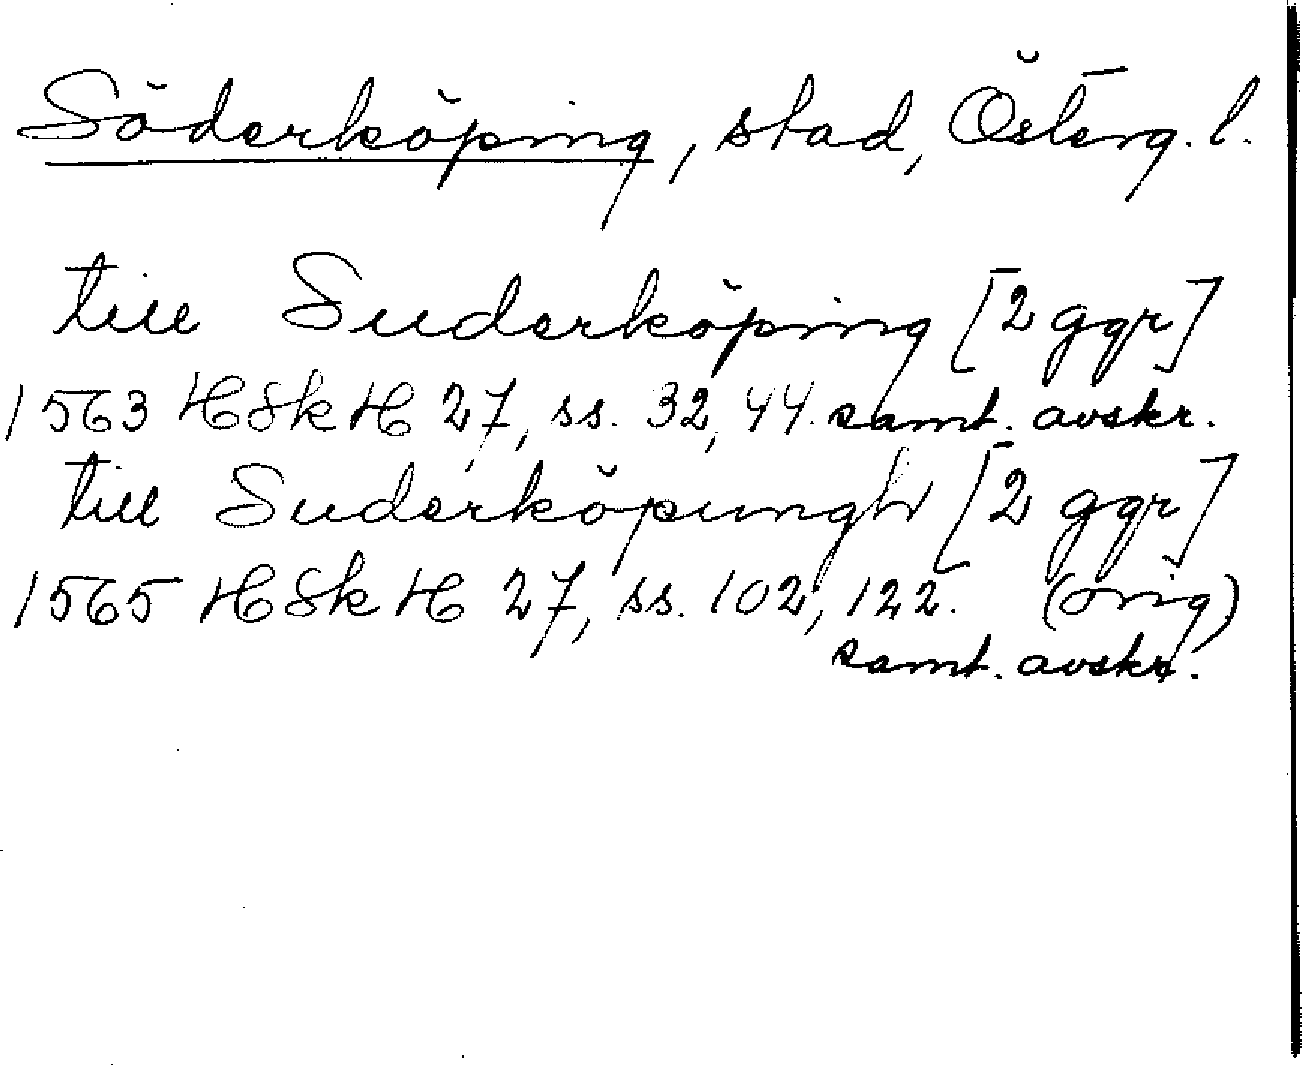 Söderköping, stad, Österg. l.
till Suderköping [2 ggr]
1563 HSkH 27, ss. 32, 44. samt. avskr.
till Suderköpungh [2 ggr]
1565 HSkH 27, ss. 102, 122. (orig)
samt. avskr.